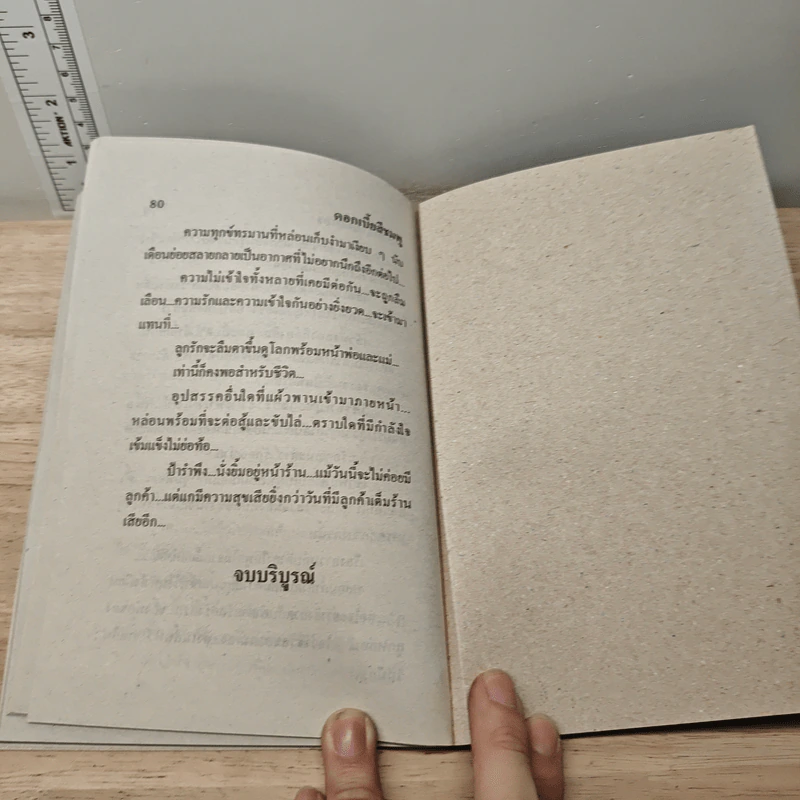 80
ดอกเบี้ยสีชมพู
ความทุกข์ทรมานที่หล่อนเก็บงำมาเงียบ ๆ นับ
เดือนย่อยสลายกลายเป็นอากาศที่ไม่อยากนึกถึงอีกต่อไป...
ความไม่เข้าใจทั้งหลายที่เคยมีต่อกัน...จะถูกลืม
เลือน...ความรักและความเข้าใจกันอย่างยิ่งยวด...จะเข้ามา
แทนที่...
ลูกรักจะลืมตาขึ้นดูโลกพร้อมหน้าพ่อและแม่...
เท่านี้ก็คงพอสำหรับชีวิต...
อุปสรรคอื่นใดที่แผ้วพานเข้ามาภายหน้า...
หล่อนพร้อมที่จะต่อสู้และขับไล่...ตราบใดที่มีกำลังใจ
เข้มแข็งไม่ย่อท้อ...
ป้ารำพึง...นั่งยิ้มอยู่หน้าร้าน...แม้วันนี้จะไม่ค่อยมี
ลูกค้า...แต่แกมีความสุขเสียยิ่งกว่าวันที่มีลูกค้าเต็มร้าน
เสียอีก...
จบบริบูรณ์
AKTION
1
2
3
4
5
6
7
8